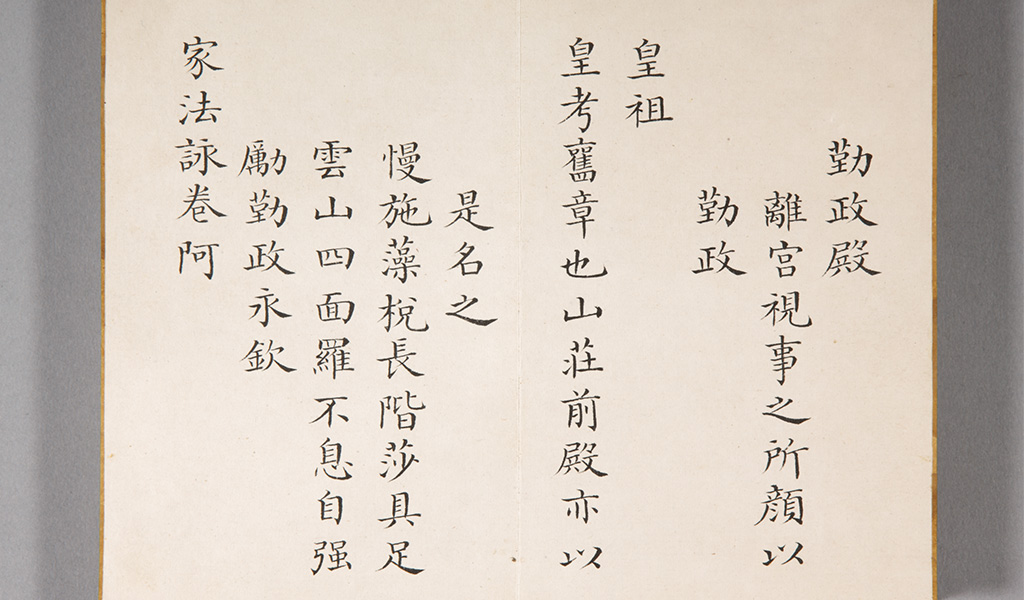 勤政殿
離宮視事之所顔以
勤政
皇祖
皇考舊章也山莊前殿亦以
是名之
慢施藻梲長階莎具足
雲山四面羅不息自强
勵勤政永欽
家法詠卷阿